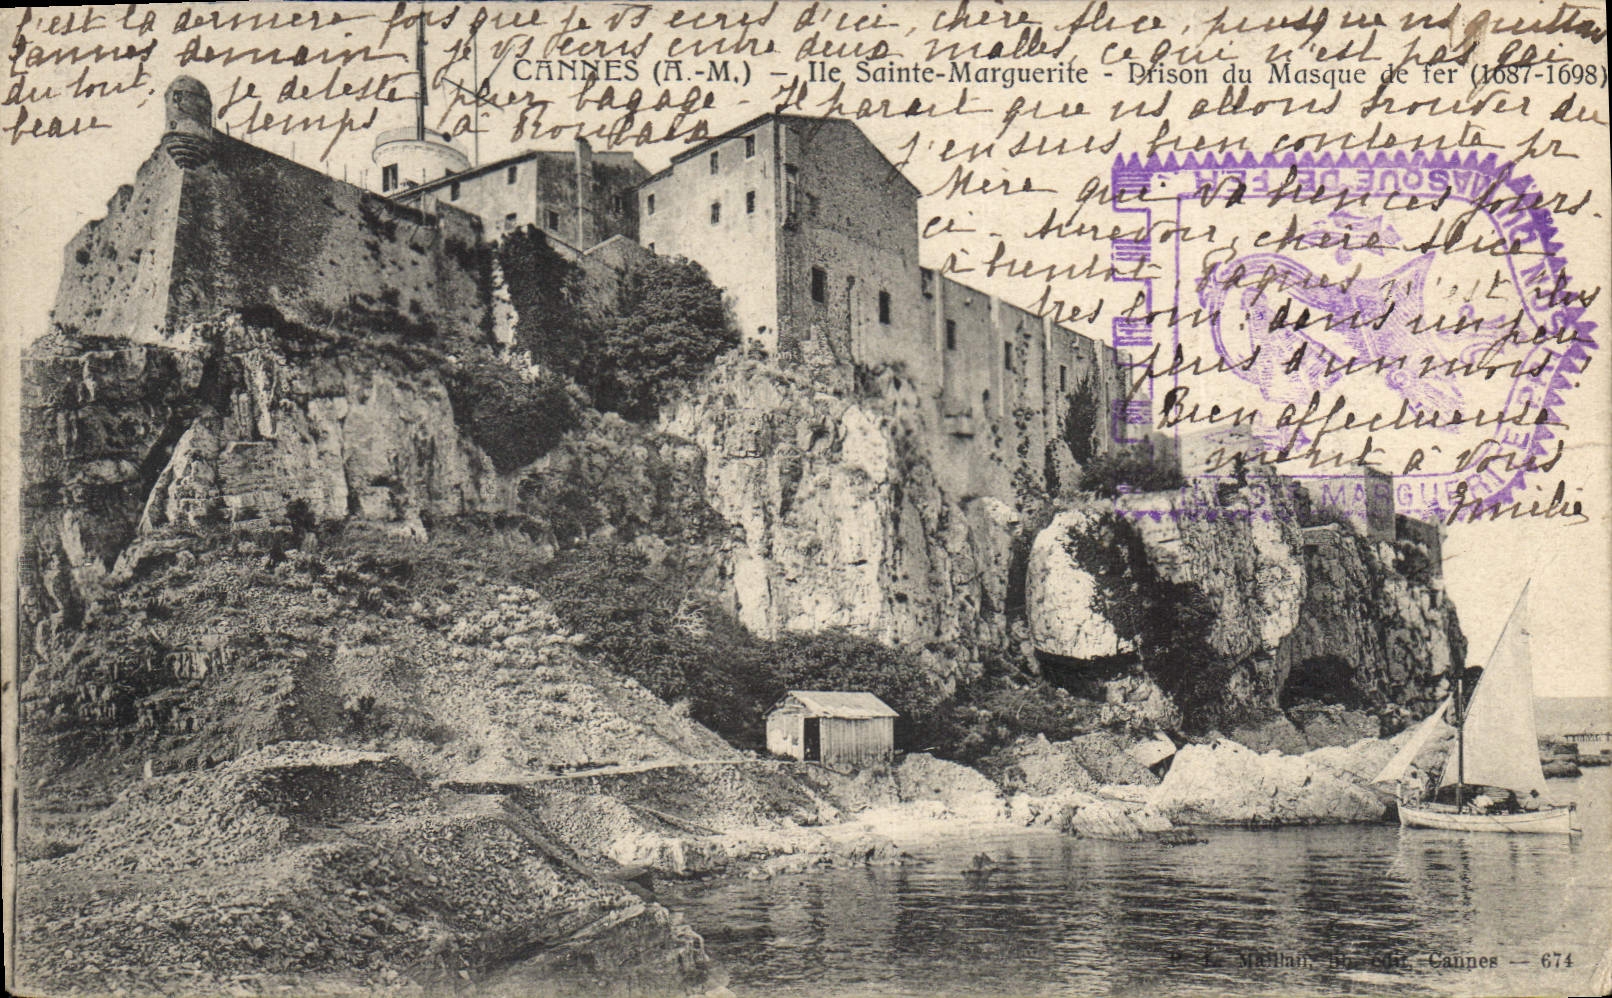 C'est la dernière fois que je vs ecris d'ici, chère Alice, puisque ns quittons
Cannes demain je vs ecris entre deux malles, ce qui n'est pas gai
CANNES (A.-M.) — Ile Sainte-Marguerite - Prison du Masque de fer (1687-1698)
du tout, je deteste plier bagage - Il parait que ns allons trouver du
beau temps à
j'en suis bien contente pr
Mère qui va bien ces jours-
ci - Aurevoir, chère Alice
à bientot, Paques n'est plus
tres loin: dans un peu
plus d'un mois!
Bien affectueuse
ment à vous
Emilie
MASQUE DE FER
MARGUERITE
P. L. Maillan, lib. edit. Cannes — 674